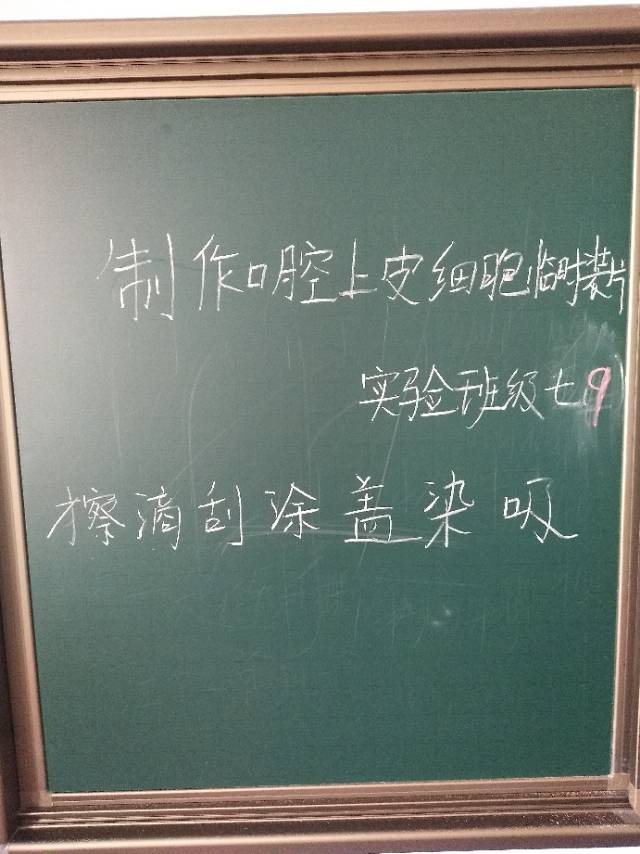 制作口腔上皮细胞临时装片
实验班级七(9)
擦滴刮涂盖染吸